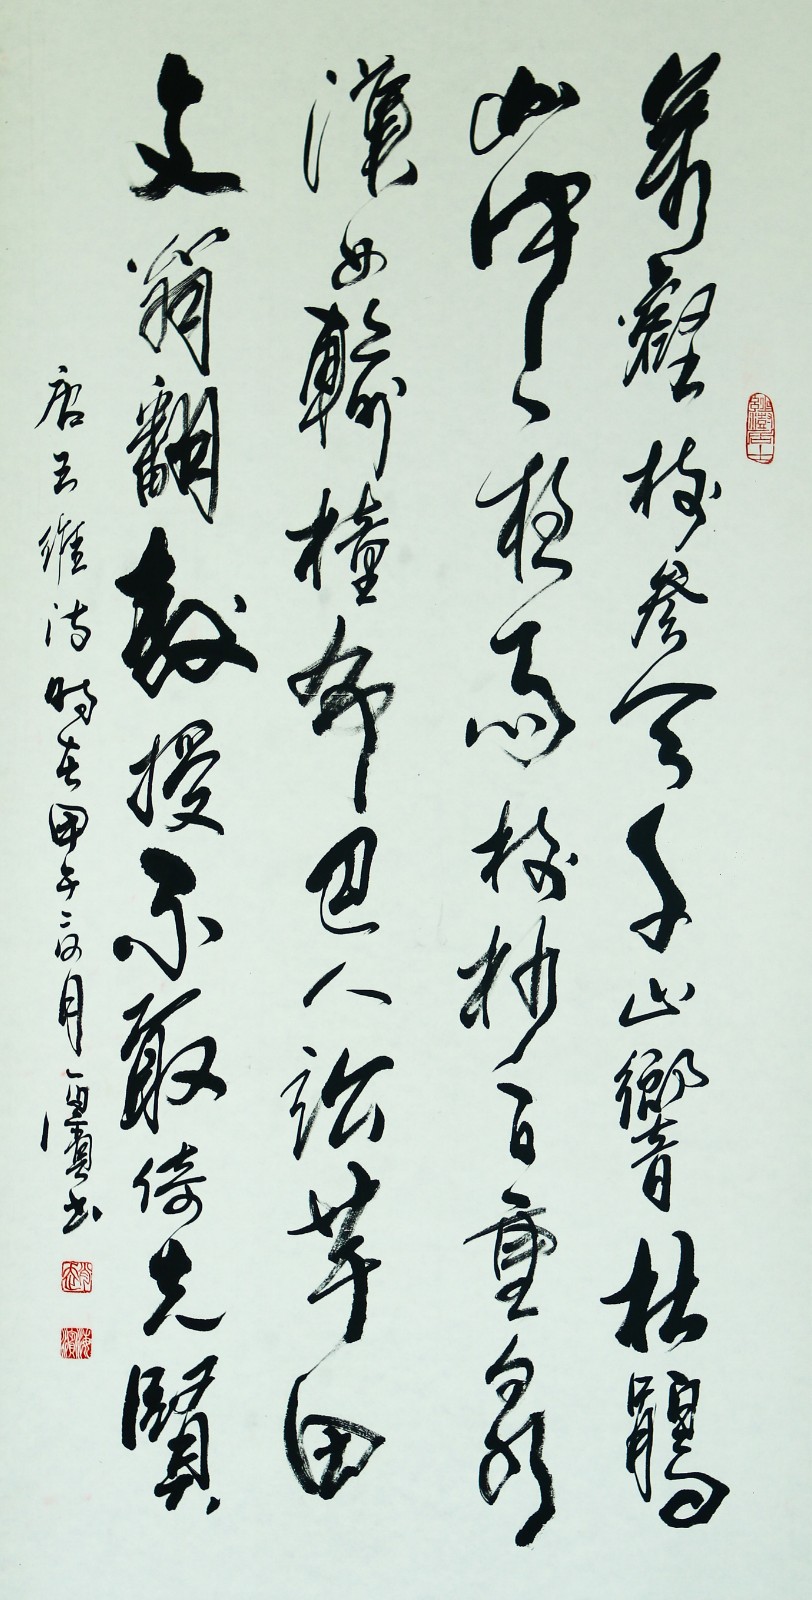 萬壑樹參天千山響杜鵑
山中一夜雨樹杪百重泉
漢女輸橦布巴人訟芋田
文翁翻教授不敢倚先賢
唐王維詩時在甲午月濱書